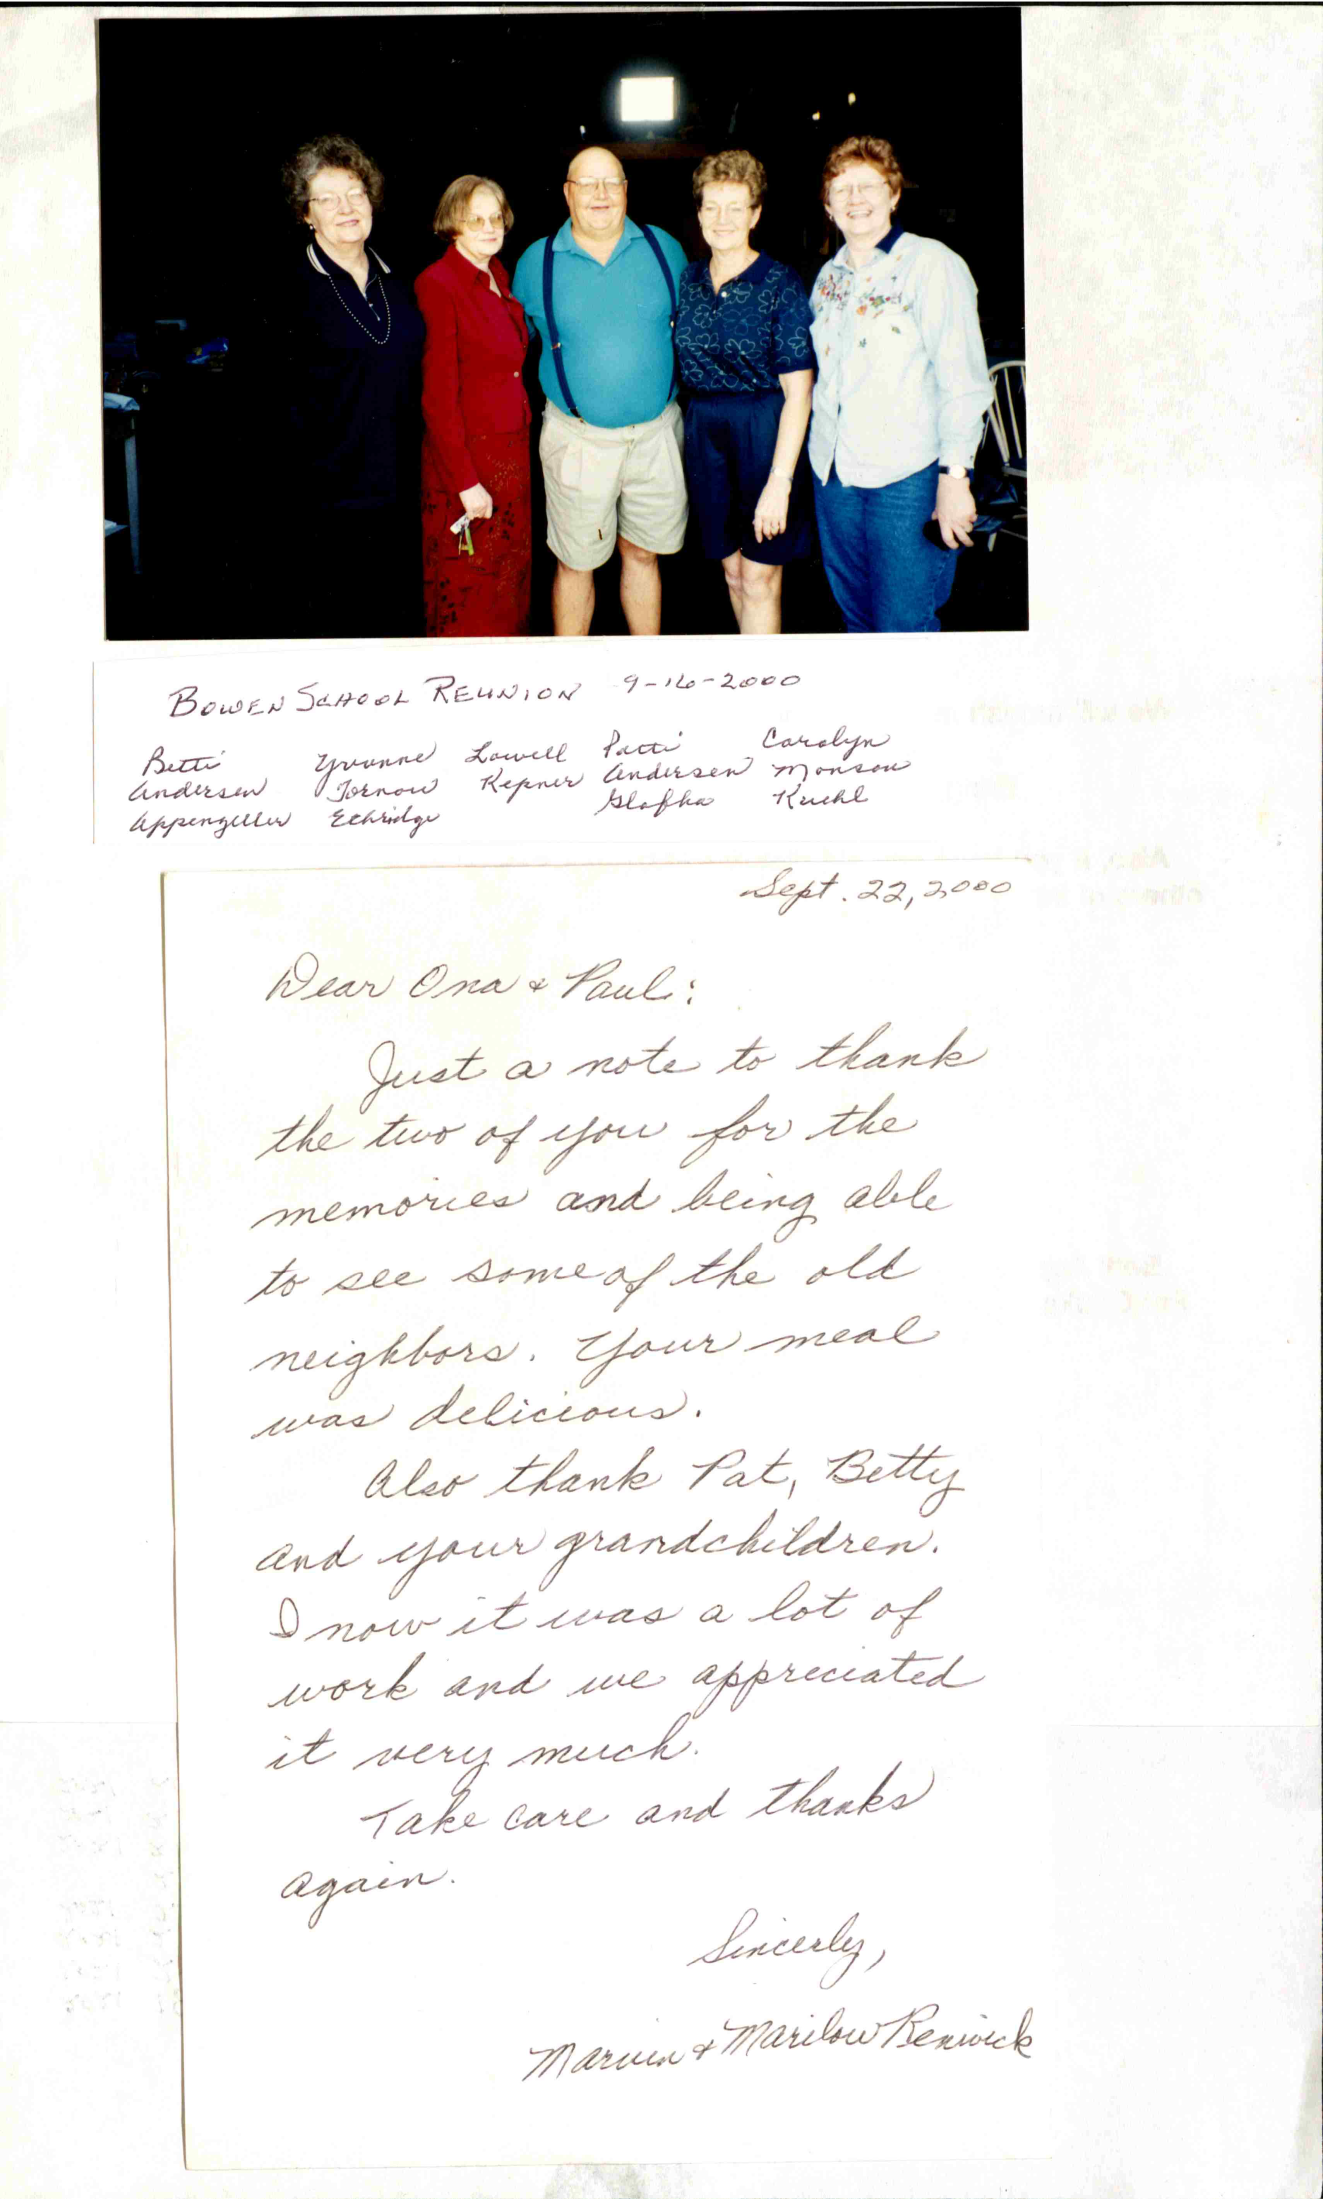 BOWEN SCHOOL REUNION 9-16-2000
Betti Yvonne Lowell Patti Carolyn
Andersen Tornow Kepner Andersen Monson
Appenzeller Ethridge Slafka Kuehl
Sept. 22, 2000
Dear Ona & Paul:
Just a note to thank
the two of you for the
memories and being able
to see some of the old
neighbors. Your meal
was delicious.
Also thank Pat, Betty
and your grandchildren.
I now it was a lot of
work and we appreciated
it very much.
Take care and thanks
again.
Sincerly,
Marvin & Marilow Renwick